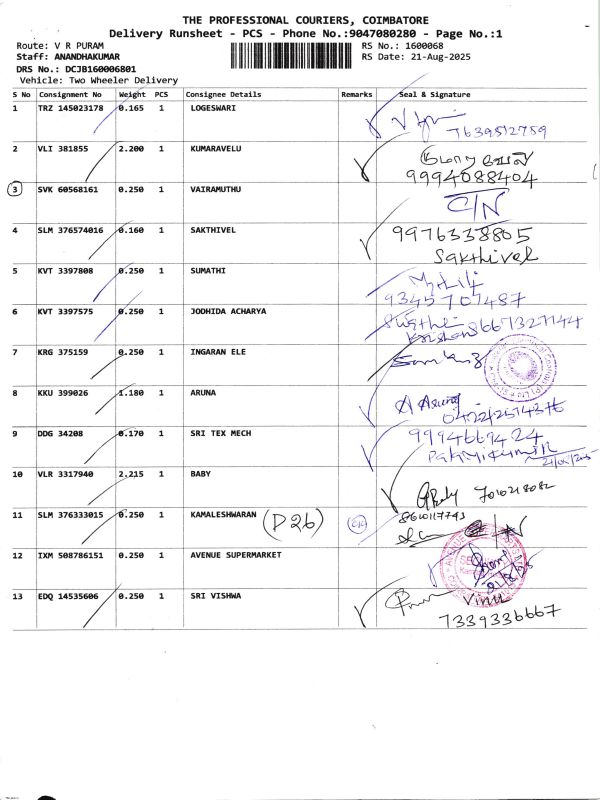 THE PROFESSIONAL COURIERS, COIMBATORE
Delivery Runsheet - PCS - Phone No.:9047080280 - Page No.:1
Route: V R PURAM RS No.: 1600068
Staff: ANANDHAKUMAR RS Date: 21-Aug-2025
DRS No.: DCJB160006801
Vehicle: Two Wheeler Delivery
S No Consignment No Weight PCS Consignee Details Remarks Seal & Signature
1 TRZ 145023178 0.165 1 LOGESWARI
7639512759
2 VLI 381855 2.200 1 KUMARAVELU
9994088404
3 SVK 60568161 0.250 1 VAIRAMUTHU C/N
4 SLM 376574016 0.160 1 SAKTHIVEL 9976338805
Sakthivel
5 KVT 3397808 0.250 1 SUMATHI
9345707487
6 KVT 3397575 0.250 1 JODHIDA ACHARYA
Krishnan 8667327144
7 KRG 375159 0.250 1 INGARAN ELE
8 KKU 399026 1.180 1 ARUNA A Aruna
9 DDG 34208 0.170 1 SRI TEX MECH 9994669424
21/08/2025
10 VLR 3317940 2.215 1 BABY Baby 7010218082
11 SLM 376333015 0.250 1 KAMALESHWARAN (D26) 8610117743
12 IXM 508786151 0.250 1 AVENUE SUPERMARKET
13 EDQ 14535606 0.250 1 SRI VISHWA Vinu
7339336667